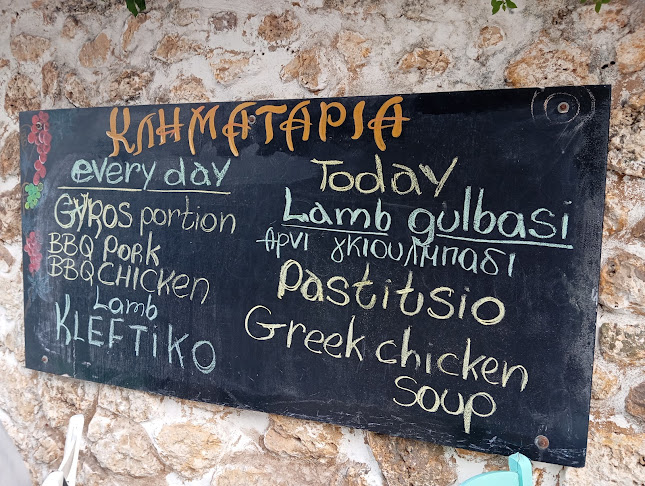 ΚΛΗΜΑΤΑΡΙΑ
every day
GYROS portion
BBQ PORK
BBQ CHICKEN
Lamb
KLEFTIKO
Today
Lamb gulbasi
Αρνι γκιουλμπαδι
Pastitsio
Greek chicken
soup